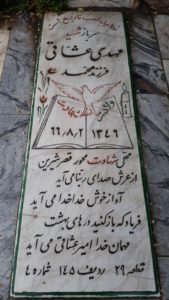 سرباز شهید
مهدی عشاقی
فرزند محمد
ولادت شهادت
۶۶٫۸٫۲ ۱۳۴۶
محل شهادت محور قصر شیرین
از عرش صدای ربنا می آید
آواز خوش خدا خدا می آید
فریاد که باز کنید درهای بهشت
مهمان خدا امیر عشاقی می آید
قطعه ۲۹ ردیف ۱۴۵ شماره ۴